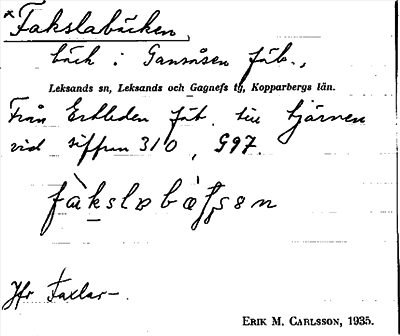 *Fakslabäcken,
bäck i Gansåsen fäb.,
Leksands sn, Leksands och Gagnefs tg, Kopparbergs län.
Från Erkleden fäb. till tjärnen
vid siffran 310, G97.
Jfr Faxlar-.
ERIK M. CARLSSON, 1935.